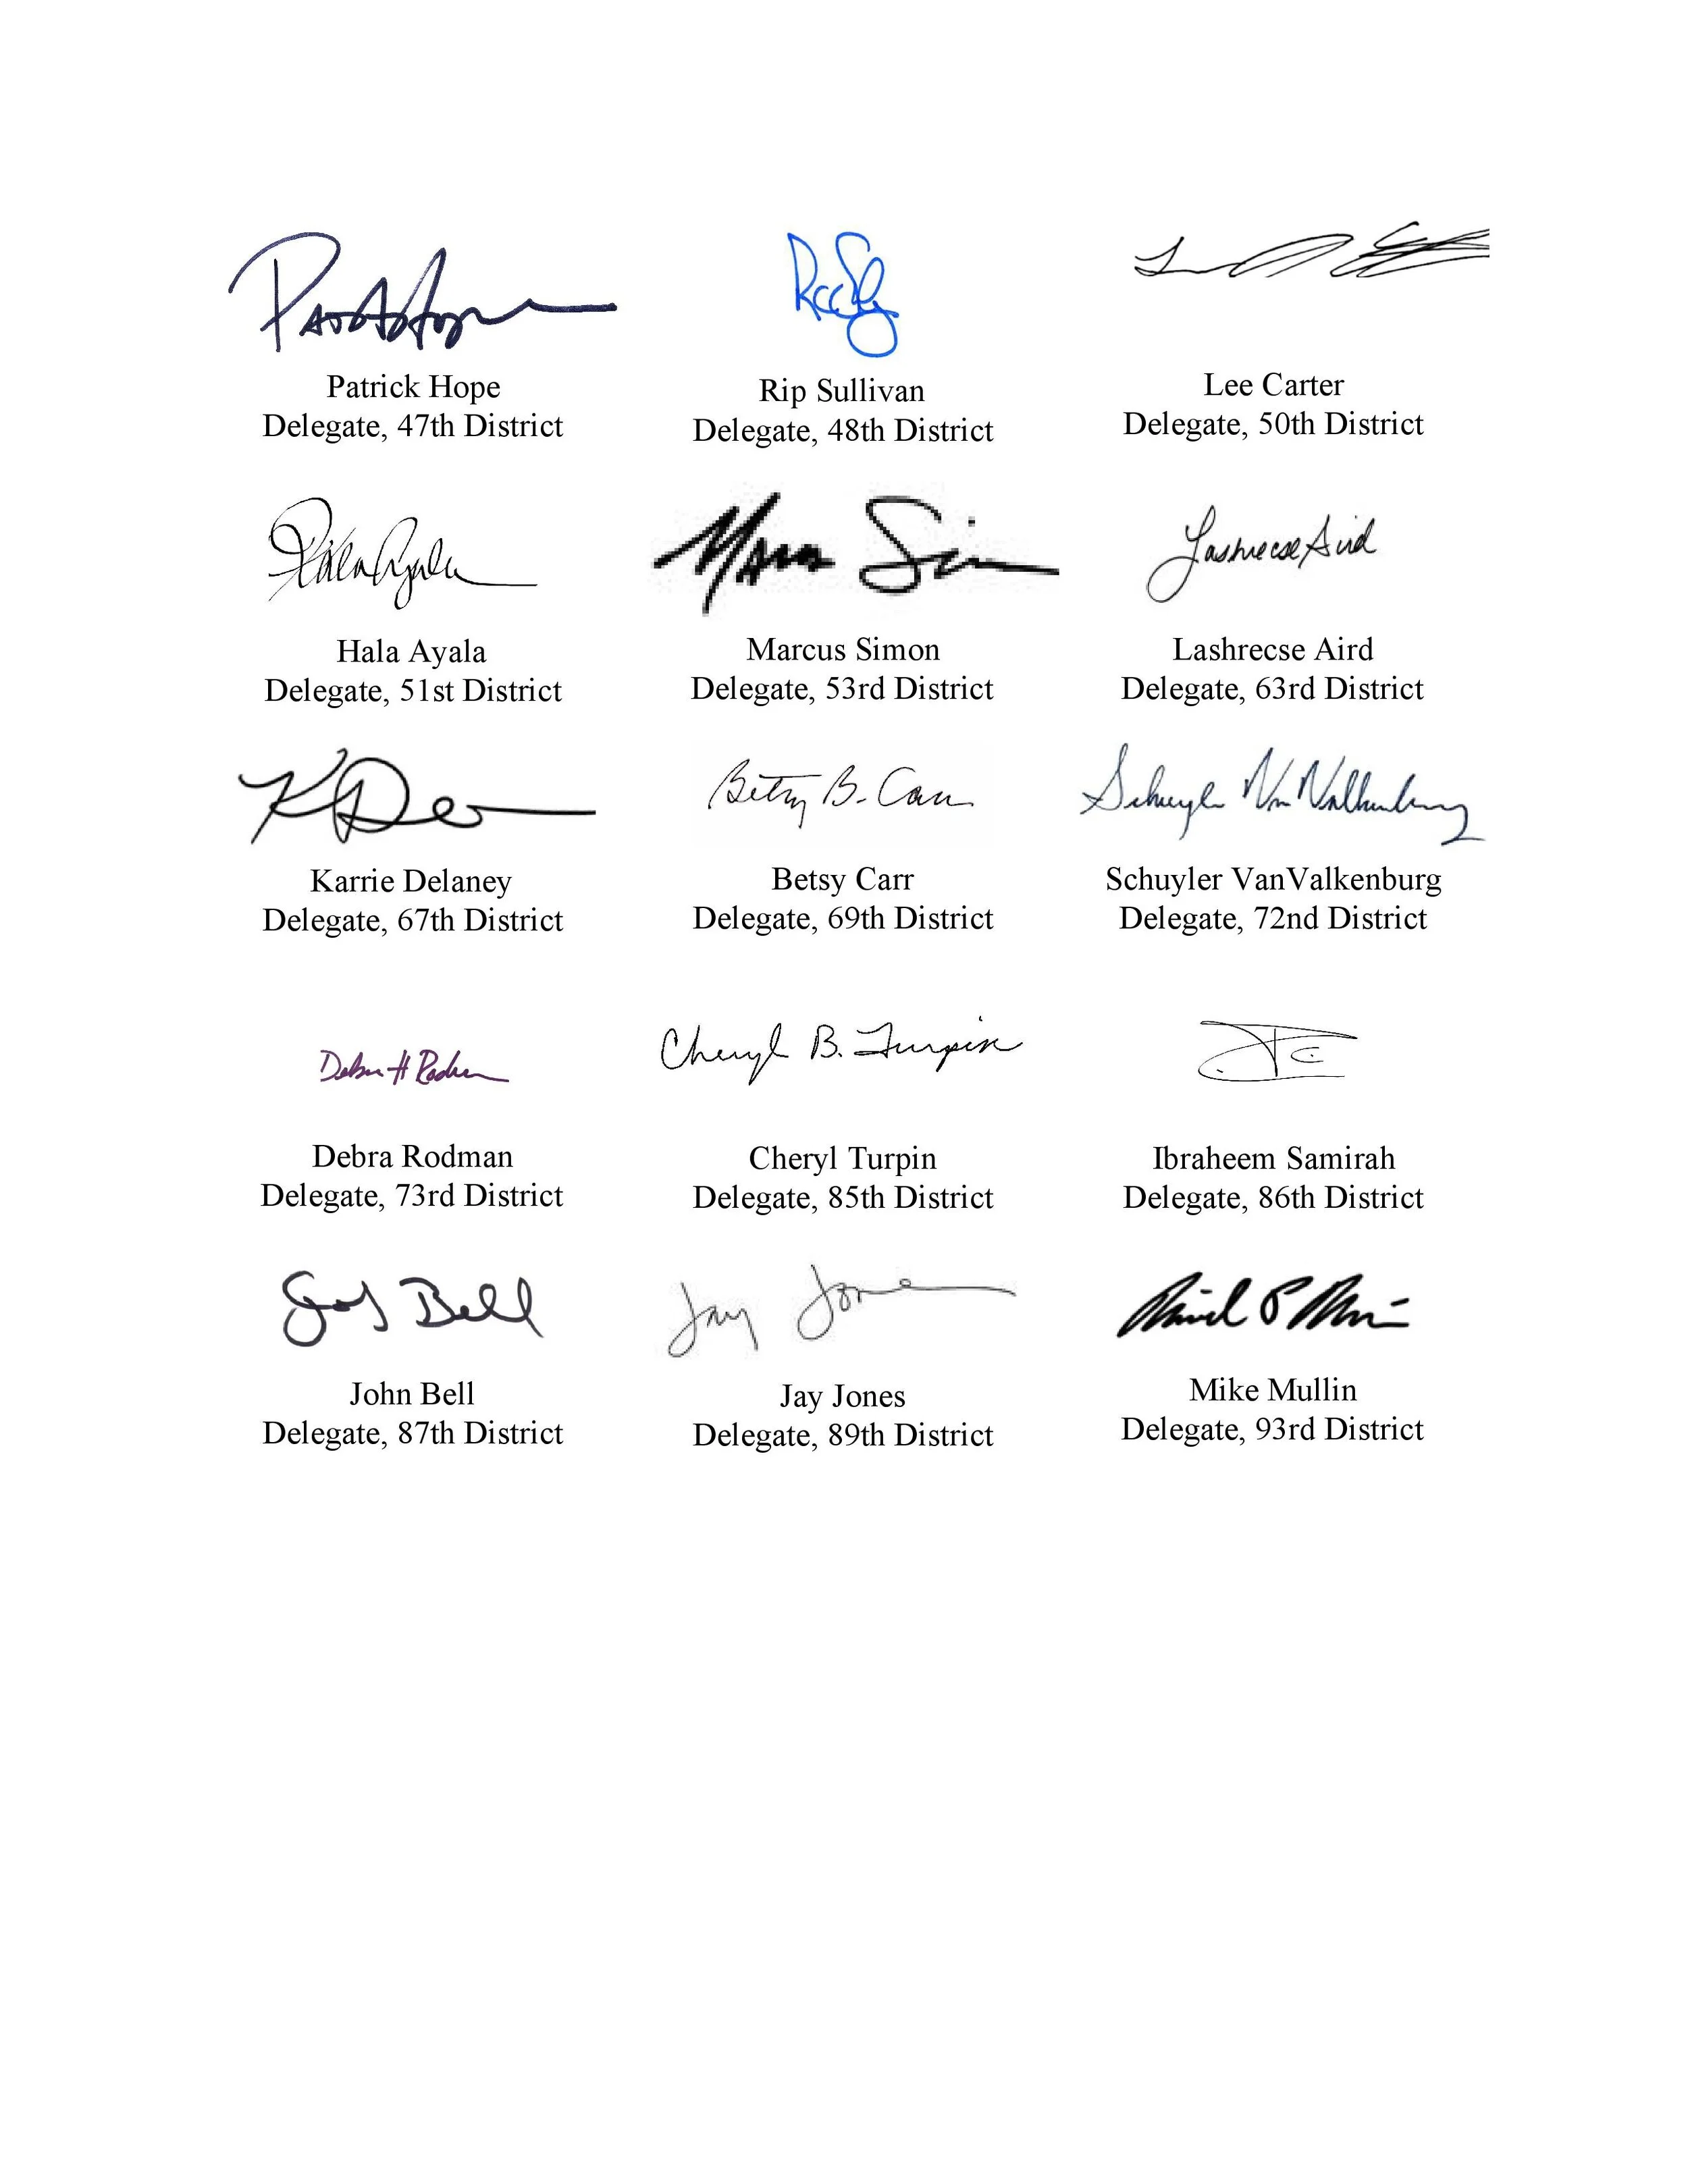 Patrick Hope
Delegate, 47th District
Rip Sullivan
Delegate, 48th District
Lee Carter
Delegate, 50th District
Hala Ayala
Hala Ayala
Delegate, 51st District
Marcus Simon
Delegate, 53rd District
Lashrecse Aird
Lashrecse Aird
Delegate, 63rd District
Karrie Delaney
Delegate, 67th District
Betsy B. Carr
Betsy Carr
Delegate, 69th District
Schuyler VanValkenburg
Schuyler VanValkenburg
Delegate, 72nd District
Debra H Rodman
Debra Rodman
Delegate, 73rd District
Cheryl B. Turpin
Cheryl Turpin
Delegate, 85th District
Ibraheem Samirah
Delegate, 86th District
Bell
John Bell
Delegate, 87th District
Jay Jones
Jay Jones
Delegate, 89th District
Mike Mullin
Delegate, 93rd District